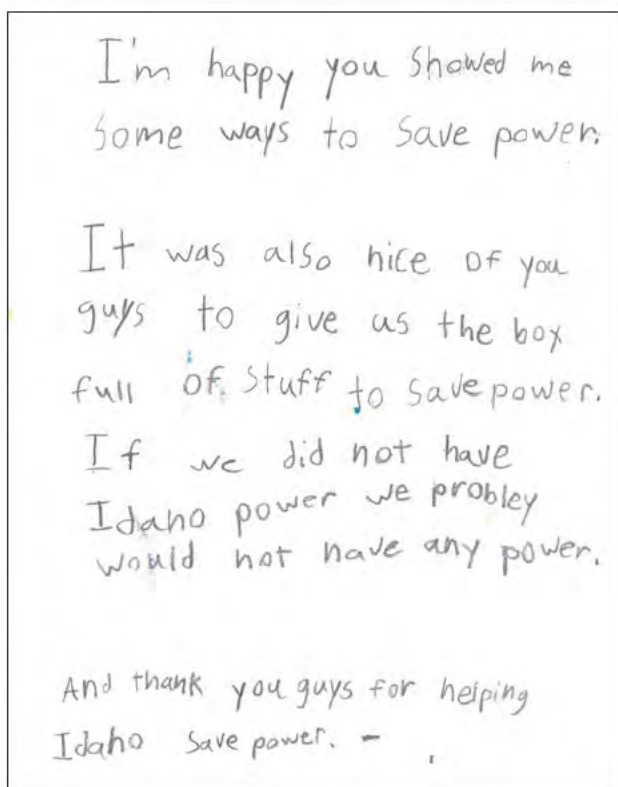 I'm happy you showed me
some ways to save power.
It was also nice of you
guys to give us the box
full of stuff to save power.
If we did not have
Idaho power we probley
would not have any power.
And thank you guys for helping
Idaho save power. -